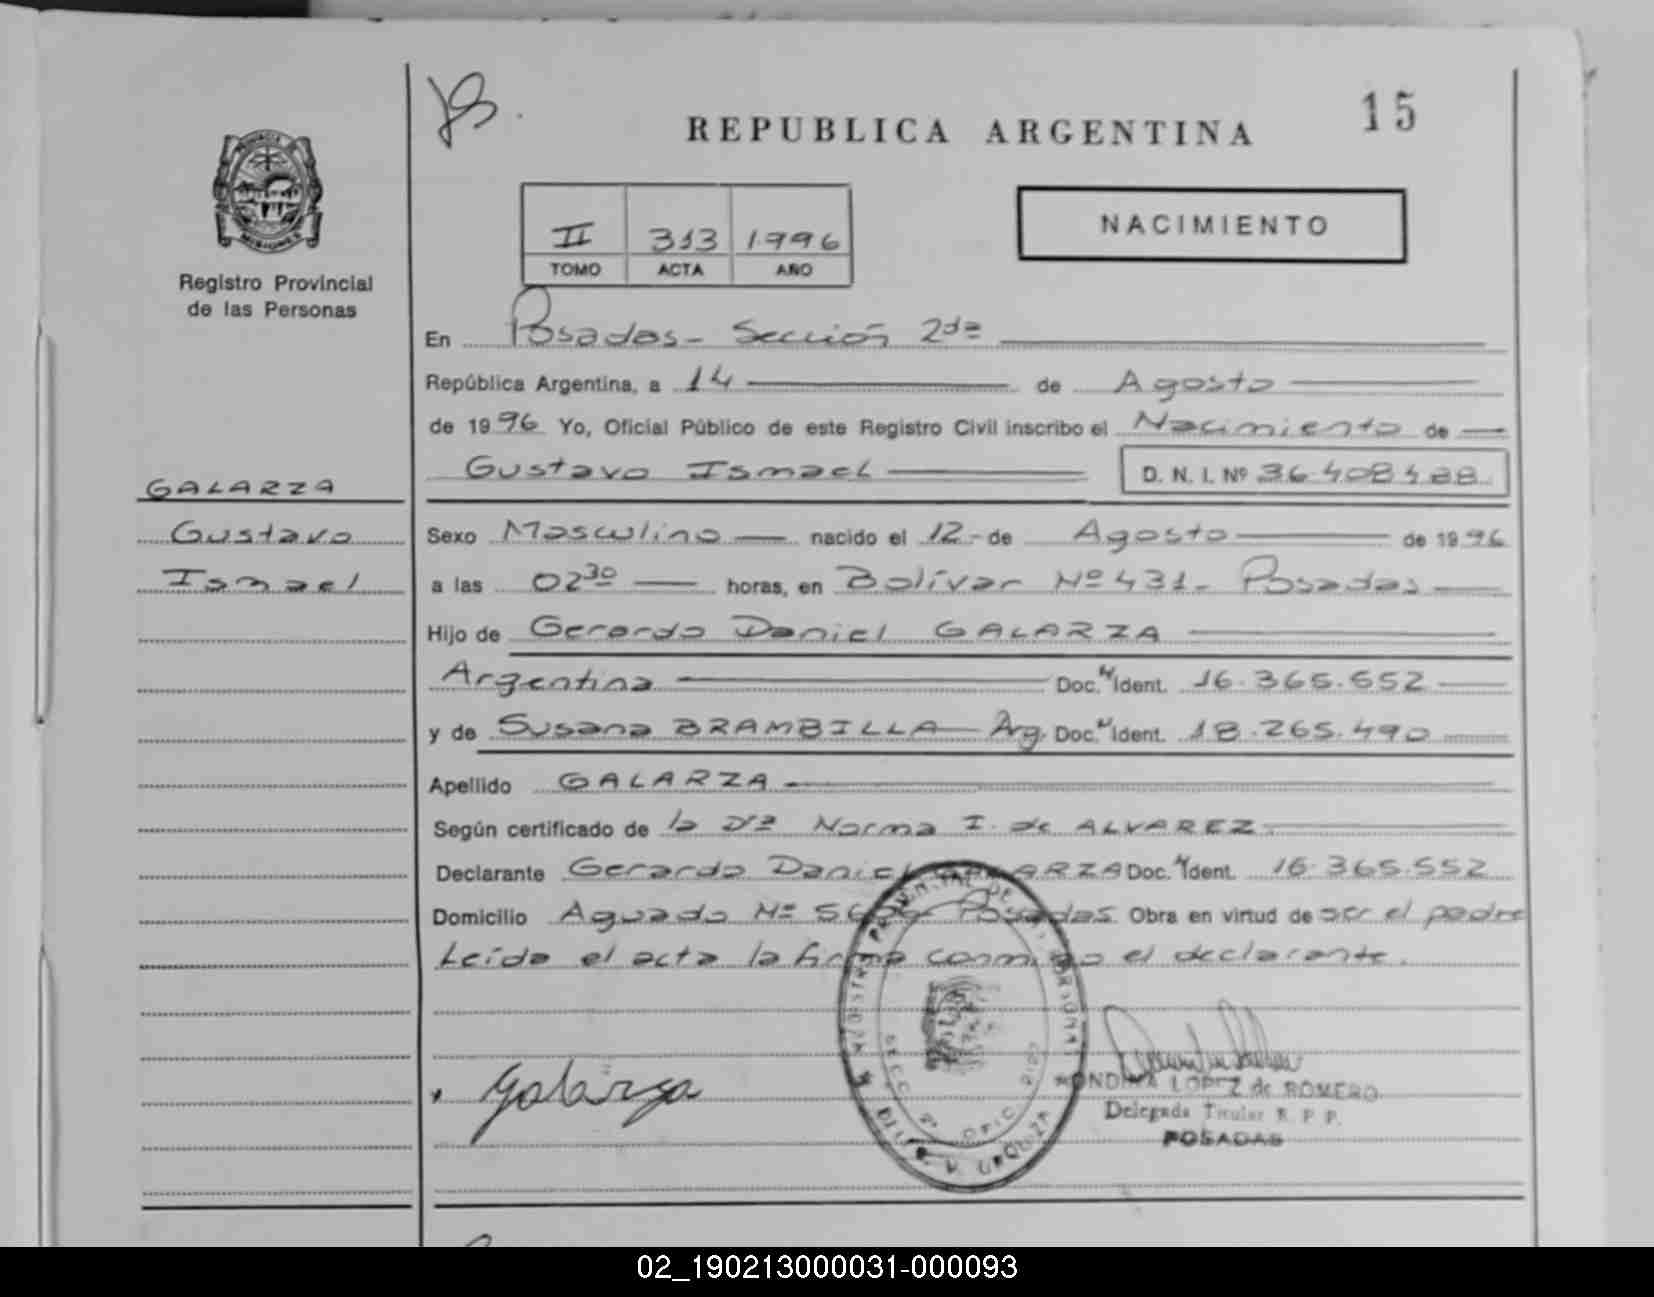 15
REPUBLICA ARGENTINA
PROVINCIA DE
MISIONES
Registro Provincial
de las Personas
II 313 1996
TOMO ACTA AÑO
NACIMIENTO
En Posadas - Sección 2da
República Argentina, a 14 de Agosto
de 1996 Yo, Oficial Público de este Registro Civil inscribo el Nacimiento de
Gustavo Ismael D. N. I. Nº 36.408.488
GALARZA
Gustavo
Ismael
Sexo Masculino nacido el 12 - de Agosto de 1996
a las 02 30 horas, en Bolívar Nº 431 - Posadas
Hijo de Gerardo Daniel GALARZA
Argentina Doc. N Ident. 16.365.552
y de Susana BRAMBILLA - Arg. Doc. N Ident. 18.265.490
Apellido GALARZA
Según certificado de la Dra Norma I. de ALVAREZ
Declarante Gerardo Daniel GALARZA Doc. N Ident. 16.365.552
Domicilio Aguado Nº Posadas. Obra en virtud de ser el padre
Leída el acta la firma conmigo el declarante.
Galarza
REGISTRO PROVINCIAL DE LAS PERSONAS
SECC. 2ª
URQUIZA
LOPEZ de ROMERO
Delegada Titular R. P. P.
POSADAS
02_190213000031-000093